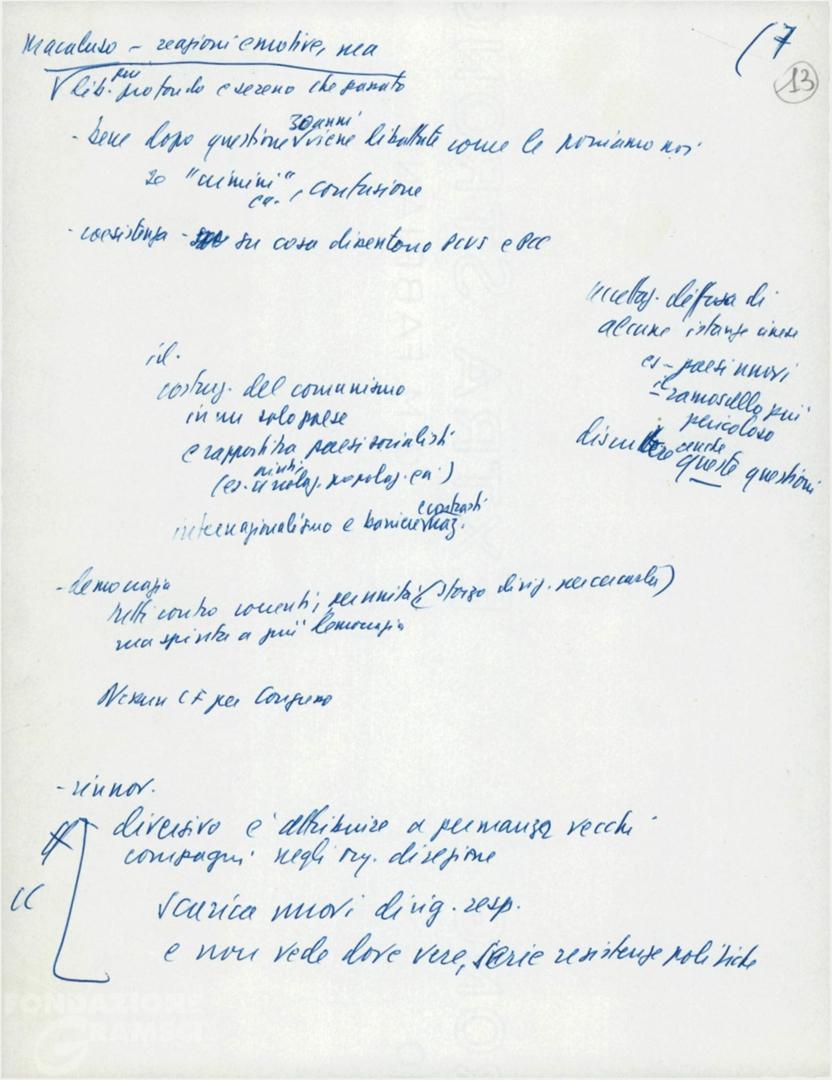 (7
13
Macaluso - reazioni emotive, ma
dib. più profondo e sereno che passato
- bene dopo 30 anni questione viene dibattuta come le poniamo noi
se "crimini" ecc., confusione
- coesistenza - su cosa dissentono PCUS e PCC
accettaz. diffusa di
alcune istanze cinesi
es - paesi nuovi
- il ramoscello più
pericoloso
discutere anche
queste questioni
id.
costruz. del comunismo
in un solo paese
e rapporti tra paesi socialisti
(es. aiuti popolaz. ecc.)
internazionalismo e barriere contrasti naz.
- democrazia
tutti contro correnti, per unità (sforzo dirig. per cercarla)
ma spinta a più democrazia
Nessun CF per Congresso
- rinnov.
diversivo è attribuire a permanenza vecchi
compagni negli org. direzione
scarica nuovi dirig. resp.
e non vede dove vere, serie resistenze politiche
FONDAZIONE
GRAMSCI